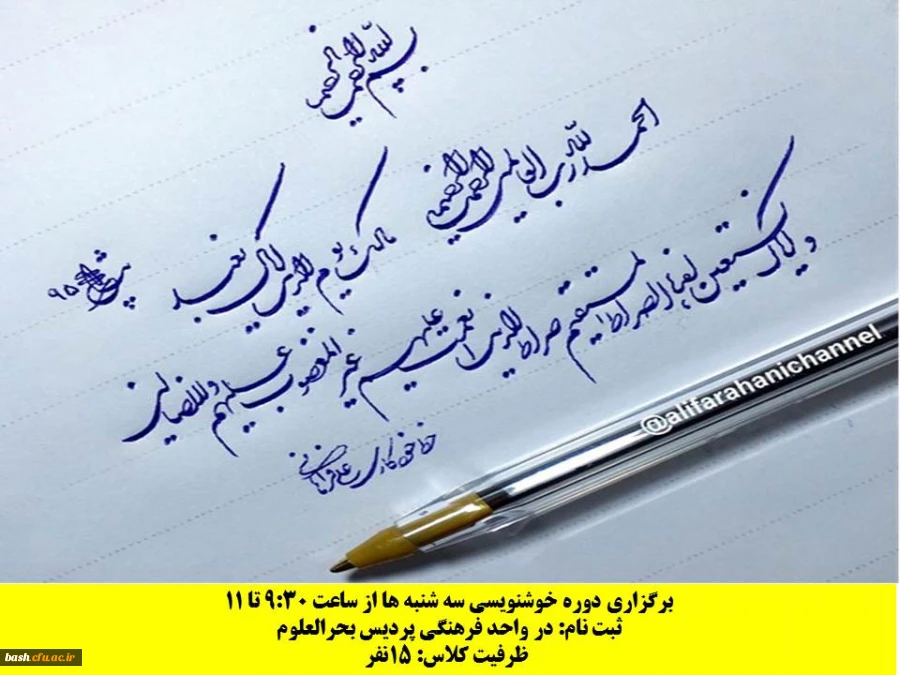 بسم الله الرحمن الرحیم
الحمد لله رب العالمین الرحمن الرحیم مالک یوم الدین ایاک نعبد
و ایاک نستعین اهدنا الصراط المستقیم صراط الذین انعمت علیهم غیر المغضوب علیهم و لا الضالین
۹۵
خط خودکار علی فراهانی
@alifarahanichannel
برگزاری دوره خوشنویسی سه شنبه ها از ساعت ۹:۳۰ تا ۱۱
ثبت نام: در واحد فرهنگی پردیس بحرالعلوم
ظرفیت کلاس: ۱۵نفر
bash.cfu.ac.ir